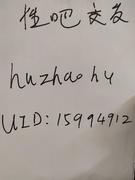 挂吧交友
huzhaohy
UID:15994912